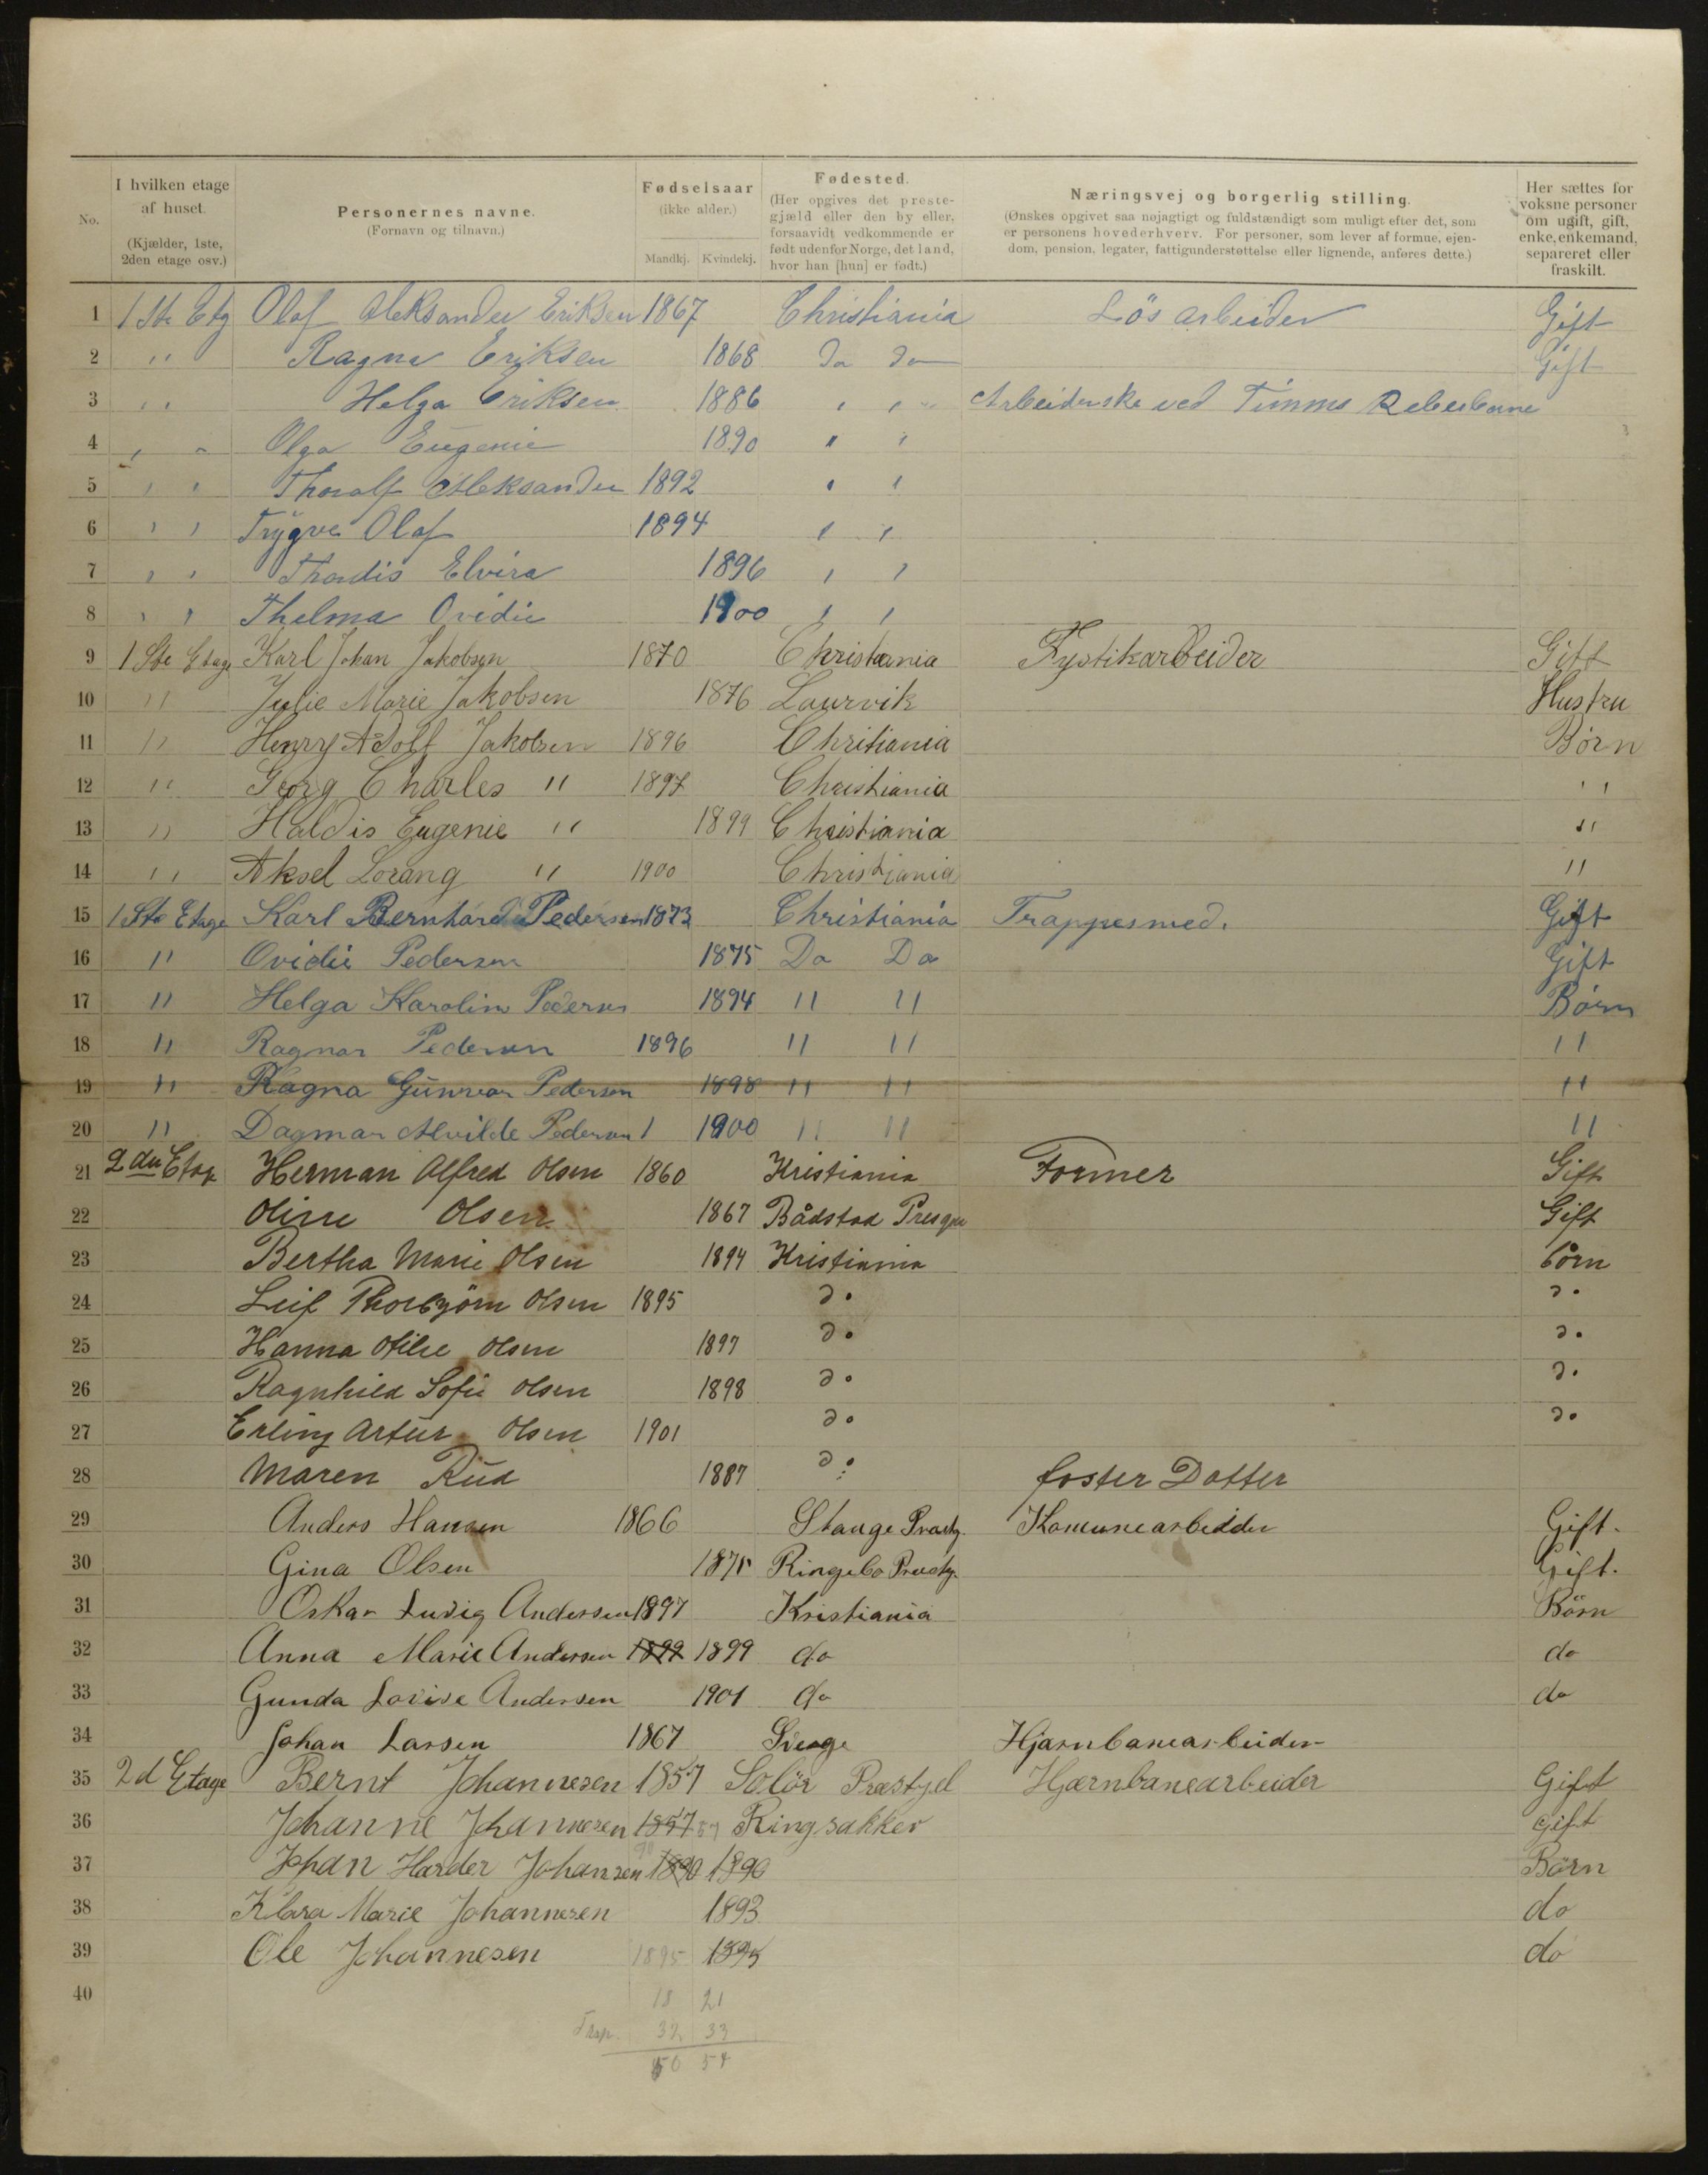 No.
I hvilken etage af huset.
(Kjælder, 1ste, 2den etage osv.)
Personernes navne.
(Fornavn og tilnavn.)
Fødselsaar
(ikke alder.)
Mandkj. Kvindekj.
Fødested.
(Her opgives det prestegjæld eller den by eller, forsaavidt vedkommende er født udenfor Norge, det land, hvor han [hun] er født.)
Næringsvej og borgerlig stilling.
(Ønskes opgivet saa nøjagtigt og fuldstændigt som muligt efter det, som er personens hovederhverv. For personer, som lever af formue, ejendom, pension, legater, fattigunderstøttelse eller lignende, anføres dette.)
Her sættes for voksne personer om ugift, gift, enke, enkemand, separeret eller fraskilt.
1 1 Ste Etg Olaf Aleksander Eriksen 1867 Christiania Lös arbeider Gift
2 " Ragna Eriksen 1868 Do Do Gift
3 " Helga Eriksen 1886 " " Arbeiderske ved Timms Reberbane
4 " " Olga Eugenie 1890 " "
5 " " Thoralf Aleksander 1892 " "
6 " " Trygve Olaf 1894 " "
7 " " Thordis Elvira 1896 " "
8 " " Thelma Ovidie 1900 " "
9 1 Ste Etage Karl Johan Jakobsen 1870 Christiania Fystikarbeider Gift
10 " Julie Marie Jakobsen 1876 Laurvik Hustru
11 " Henry Adolf Jakobsen 1896 Chritiania Børn
12 " Georg Charles " 1897 Christiania "
13 " Haldis Eugenie " 1899 Christiania "
14 " Aksel Lorang " 1900 Christiania "
15 1 Ste Etage Karl Bernhard Pedersen 1873 Christiania Trappesmed. Gift
16 " Ovidie Pedersen 1875 Do Do Gift
17 " Helga Karoline Pedersen 1894 " " Børn
18 " Ragnar Pedersen 1896 " " "
19 " Ragna Gunvor Pedersen 1898 " " "
20 " Dagmar Alvilde Pedersen 1 1900 " " "
21 2den Etage Herman Alfred Olsen 1860 Kristiania Former Gift
22 Oline Olsen 1867 Bådstad Gift
23 Bertha Marie Olsen 1894 Kristiania börn
24 Leif Thorbjörn Olsen 1895 do do
25 Hanna Otilie Olsen 1897 do do
26 Ragnhild Sofie Olsen 1898 do do
27 Erling Artur Olsen 1901 do do
28 Maren Rud 1887 do foster Dotter
29 Anders Hansen 1866 Stange Præstg. Komunearbeidder Gift.
30 Gina Olsen 1875 Ringebo Præstg. Gift.
31 Oskar Ludvig Andersen 1897 Kristiania Börn
32 Anna Marie Andersen 1899 1899 do do
33 Gunda Lovise Andersen 1901 do do
34 Johan Larsen 1867 Hjærnbanearbeider
35 2d Etage Bernt Johannesen 1857 Solör Præstgel Hjærnbanearbeider Gift
36 Johanne Johannesen 1857 57 Ringsakker gift
37 Johan Harder Johansen 1890 90 1890 Børn
38 Klara Marie Johannesen 1893 do
39 Ole Johannesen 1895 1895 do
40
18 21
32 33
50 54